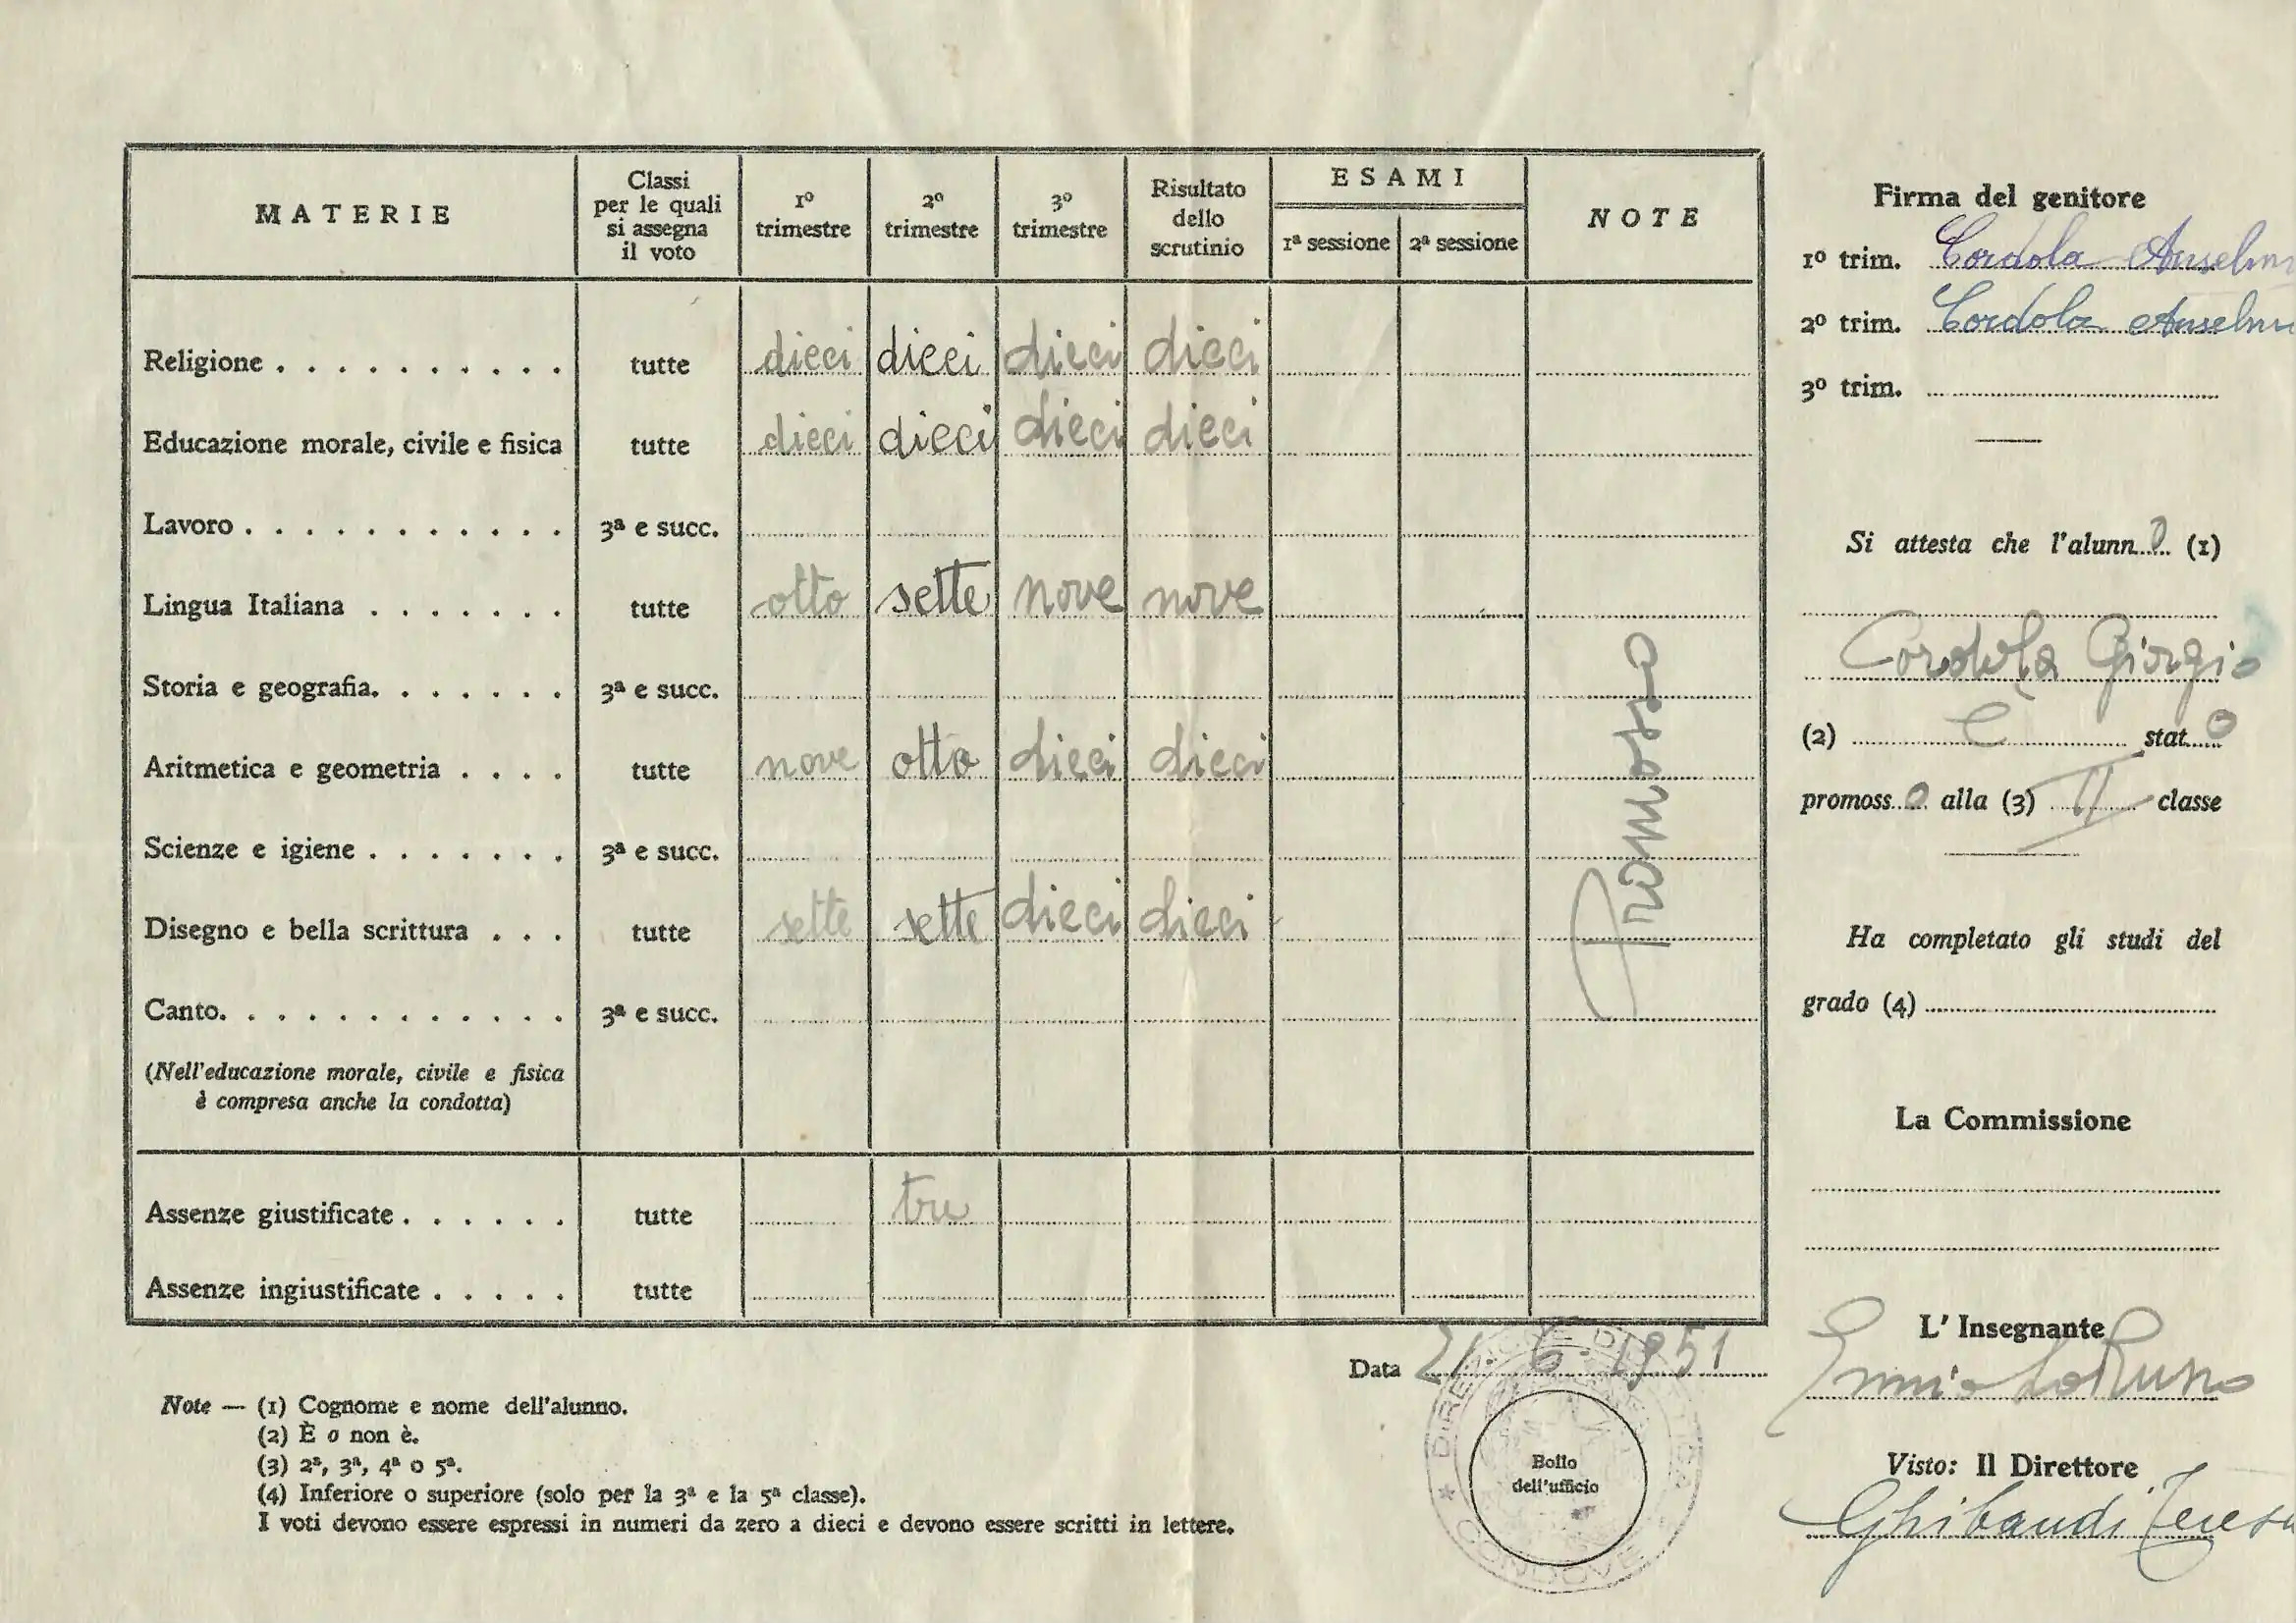 MATERIE Classi per le quali si assegna il voto 1º trimestre 2º trimestre 3º trimestre Risultato dello scrutinio ESAMI 1ª sessione 2ª sessione NOTE
Religione . . . . . . . . . . tutte dieci dieci dieci dieci
Educazione morale, civile e fisica tutte dieci dieci dieci dieci
Lavoro . . . . . . . . . . . 3ª e succ.
Lingua Italiana . . . . . . . tutte otto sette nove nove
Storia e geografia. . . . . . . 3ª e succ.
Aritmetica e geometria . . . . tutte nove otto dieci dieci
Scienze e igiene . . . . . . . 3ª e succ.
Disegno e bella scrittura . . . tutte sette sette dieci dieci
Canto. . . . . . . . . . . . 3ª e succ.
(Nell'educazione morale, civile e fisica
è compresa anche la condotta)
Promosso
Assenze giustificate . . . . . . tutte tre
Assenze ingiustificate . . . . . tutte
Data 21.6.1951
Note — (1) Cognome e nome dell'alunno.
(2) È o non è.
(3) 2ª, 3ª, 4ª o 5ª.
(4) Inferiore o superiore (solo per la 3ª e la 5ª classe).
I voti devono essere espressi in numeri da zero a dieci e devono essere scritti in lettere.
Bollo
dell'ufficio
CONDOVE
Firma del genitore
1º trim. Cordola Anselm
2º trim. Cordola Anselm
3º trim.
Si attesta che l'alunno (1)
Cordola Giorgio
(2) è stato
promosso alla (3) II classe
Ha completato gli studi del
grado (4)
La Commissione
L'Insegnante
Visto: Il Direttore
Ghibaudi Teresa